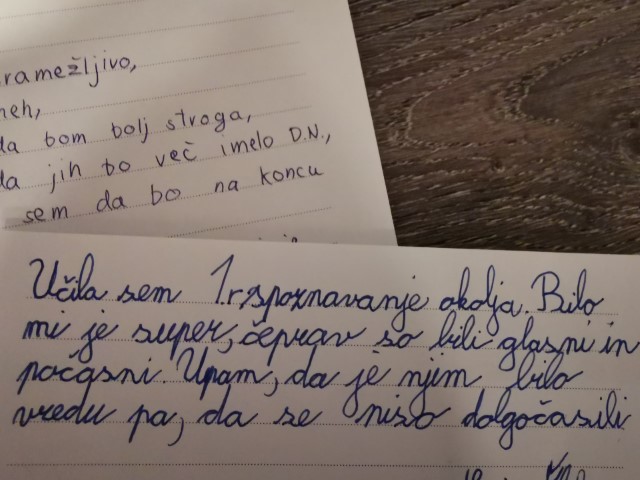 sramežljivo,
meh,
da bom bolj stroga,
da jih bo več imelo D.N.,
sem da bo na koncu
Učila sem 1.r spoznavanje okolja. Bilo
mi je super, čeprav so bili glasni in
počasni. Upam, da je njim bilo
vredu pa, da se niso dolgočasili